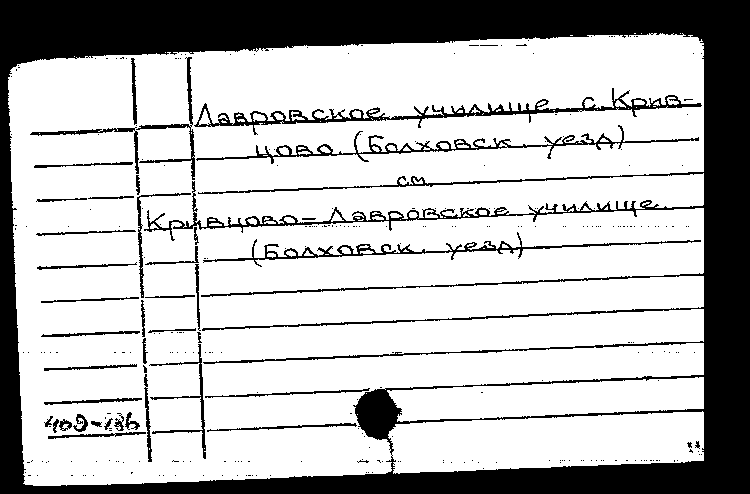 Лавровское училище с. Крив-
цово. (Болховск. уезд)
см.
Кривцово-Лавровское училище.
(Болховск. уезд)